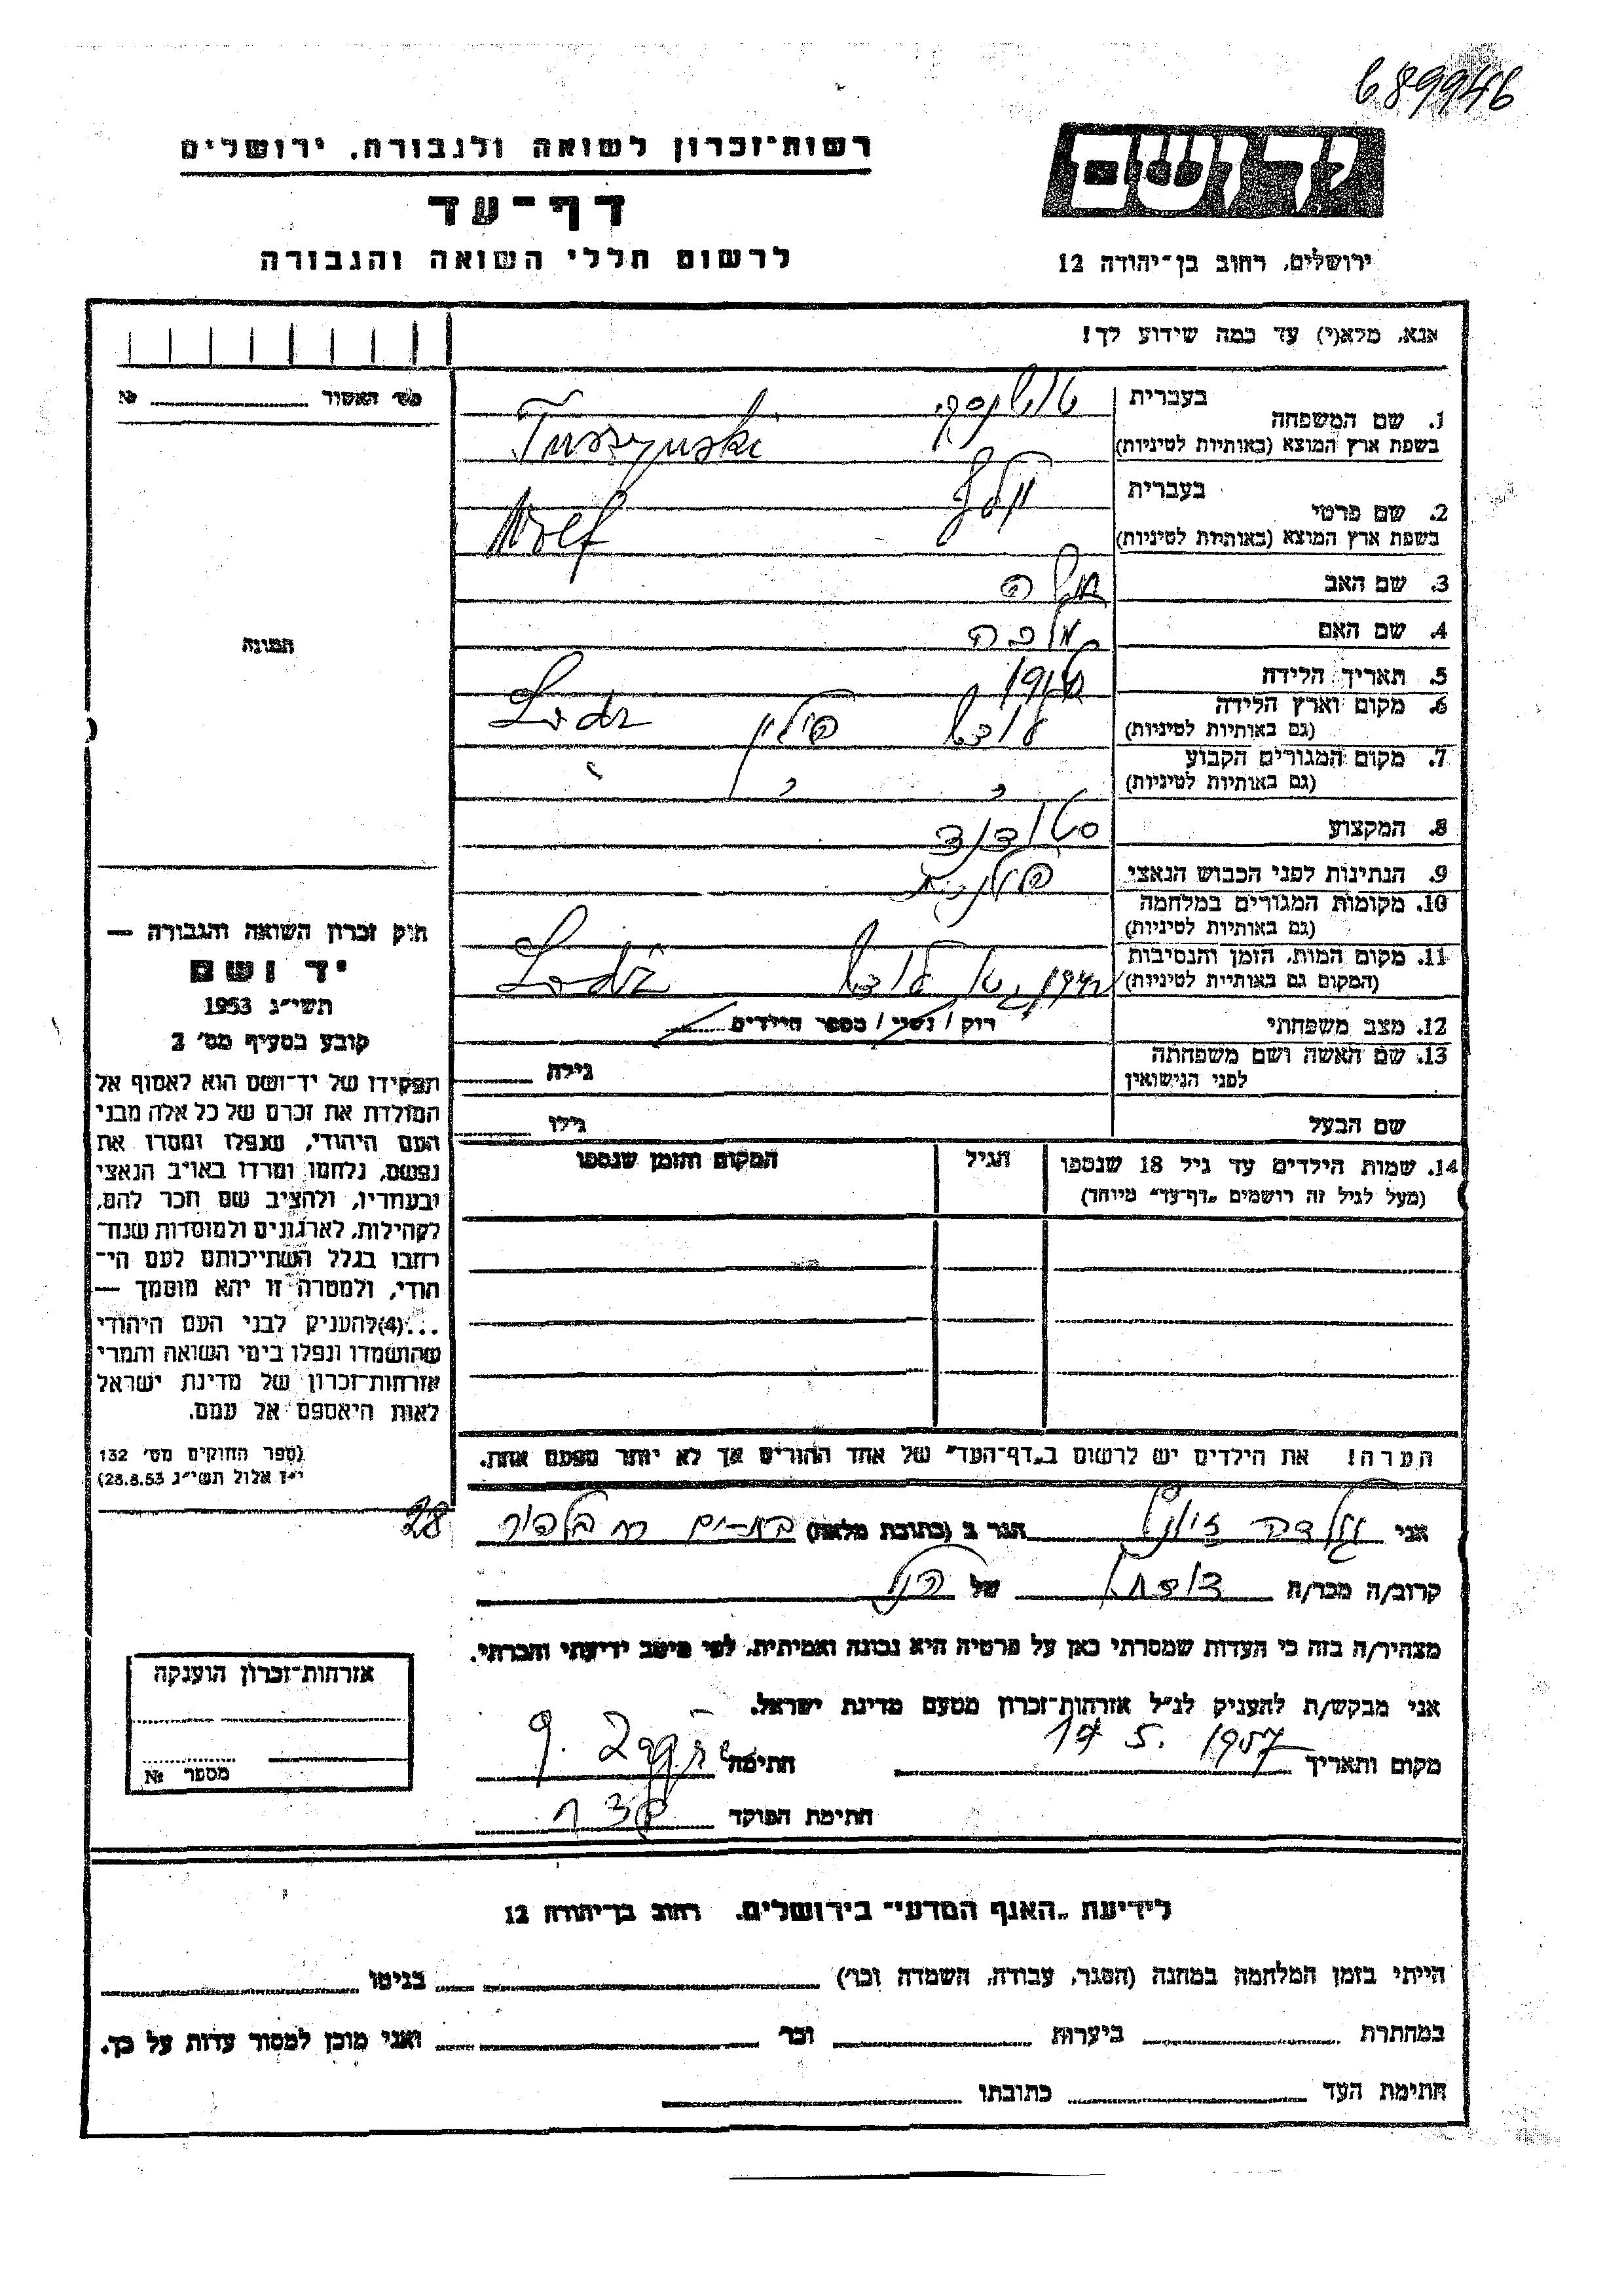 689946
יד ושם
רשות־זכרון לשואה ולגבורה, ירושלים
דף־עד
לרשום חללי השואה והגבורה
ירושלים, רחוב בן־יהודה 12
אנא, מלא(י) עד כמה שידוע לך!
מס׳ האשור № 
1. שם המשפחה בעברית טושינסקי
בשפת ארץ המוצא (באותיות לטיניות) Tuszynski
2. שם פרטי בעברית וולף
בשפת ארץ המוצא (באותיות לטיניות) Wolf
3. שם האב משה
4. שם האם מלכה
5. תאריך הלידה
6. מקום וארץ הלידה לודז' פולין Lodz
(גם באותיות לטיניות)
7. מקום המגורים הקבוע " " "
(גם באותיות לטיניות)
8. המקצוע סטודנט
9. הנתינות לפני הכבוש הנאצי פולנית
10. מקומות המגורים במלחמה
(גם באותיות לטיניות)
11. מקום המות, הזמן והנסיבות לודז' Lodz
(המקום גם באותיות לטיניות)
12. מצב משפחתי רוק / נשוי / מספר הילדים
13. שם האשה ושם משפחתה גילה
לפני הנישואין
שם הבעל גילו
14. שמות הילדים עד גיל 18 שנספו הגיל המקום והזמן שנספו
(מעל לגיל זה רושמים „דף־עד" מיוחד)
הערה! את הילדים יש לרשום ב„דף־העד" של אחד ההורים אך לא יותר מפעם אחת.
תמונה
חוק זכרון השואה והגבורה —
יד ושם
תשי״ג 1953
קובע בסעיף מס׳ 2
תפקידו של יד־ושם הוא לאסוף אל
המולדת את זכרם של כל אלה מבני
העם היהודי, שנפלו ומסרו את
נפשם, נלחמו ומרדו באויב הנאצי
ובעוזריו, ולהציב שם וזכר להם,
לקהילות, לארגונים ולמוסדות שנח־
רבו בגלל השתייכותם לעם הי־
הודי, ולמטרה זו יהא מוסמך —
...(4) להעניק לבני העם היהודי
שהושמדו ונפלו בימי השואה והמרי
אזרחות־זכרון של מדינת ישראל
לאות היאספם אל עמם.
(ספר החוקים מס׳ 132
י״ז אלול תשי״ג 28.8.53)
אני הגר ב (כתובת מלאה) בת־ים רח בלפור 28
קרוב/ה מכר/ה של
מצהיר/ה בזה כי העדות שמסרתי כאן על פרטיה היא נכונה ואמיתית, לפי מיטב ידיעתי והכרתי.
אני מבקש/ת להעניק לנ״ל אזרחות־זכרון מטעם מדינת ישראל.
מקום ותאריך 5. 1957 חתימה
חתימת הפוקד
אזרחות־זכרון הוענקה
מספר №
לידיעת „האגף המדעי" בירושלים, רחוב בן־יהודה 12
הייתי בזמן המלחמה במחנה (הסגר, עבודה, השמדה וכו׳) בגיטו
במחתרת ביערות וכו׳ ואני מוכן למסור עדות על כך.
חתימת העד כתובתו